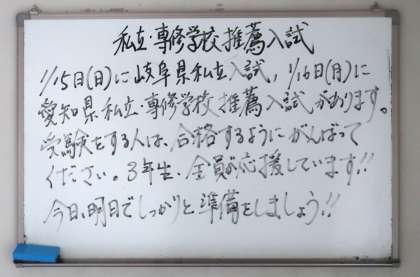 私立・専修学校推薦入試
1/15日(日)に岐阜県私立入試，1/16日(月)に
愛知県私立・専修学校推薦入試があります。
受験をする人は、合格するようにがんばって
ください。3年生、全員が応援しています!!
今日、明日でしっかりと準備をしましょう!!